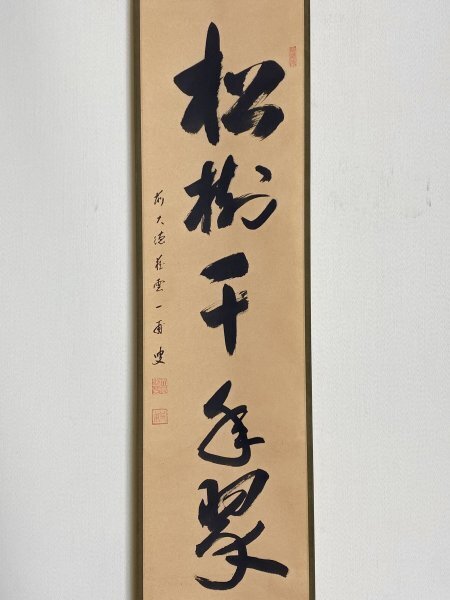 松樹千年翠
前大徳薩雲一甫叟